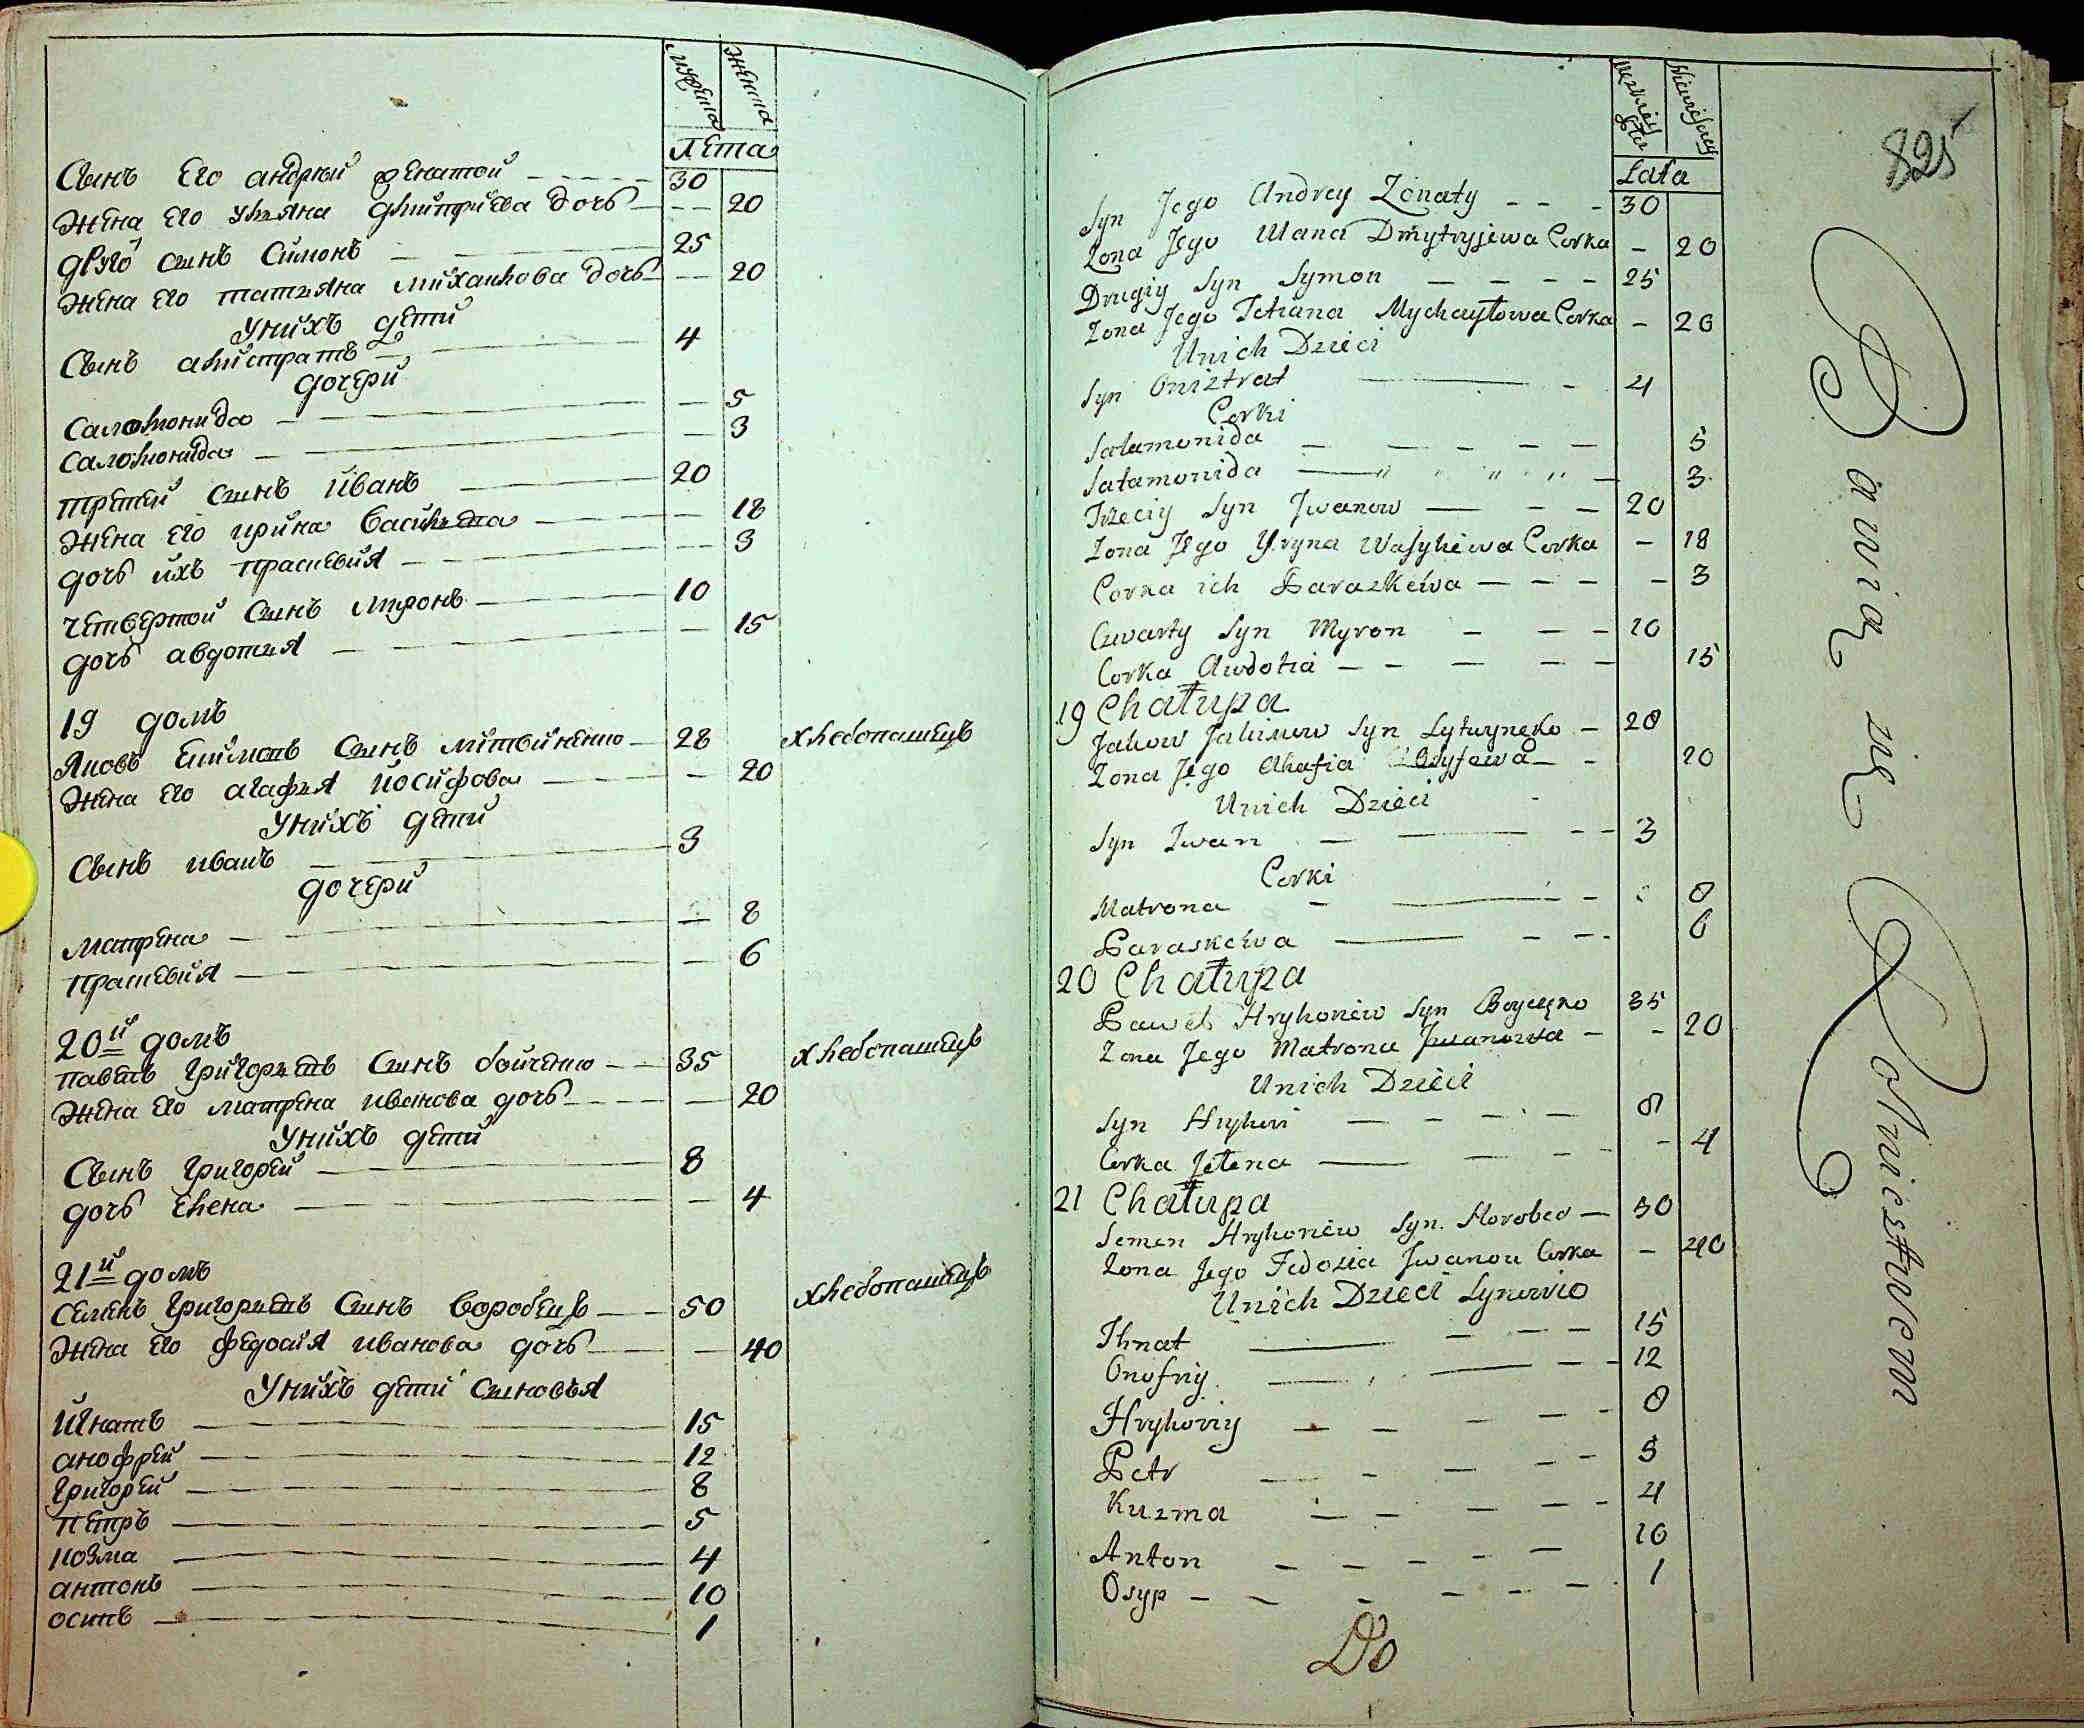 мужеска
женска
лета
Сынъ Его андрей женатой 30
Жена Его ульяна дмитриева дочь 20
другой сынъ Симонъ 25
Жена Его татьяна михаилова дочь 20
У нихъ дети
Сынъ алистратъ 4
дочери
Саломонида 5
Саломонида 3
третей Сынъ Иванъ 20
Жена Его ирина Васильева 18
дочь ихъ прасковия 3
четвертой Сынъ миронъ 10
дочь авдотья 15
19 домъ
Яковъ Екимовъ Сынъ литвиненко 28 хлебопашецъ
Жена Его агафья Иосифова 20
У нихъ дети
Сынъ иванъ 3
дочери
матрена 8
прасковия 6
20й домъ
павелъ григорьевъ Сынъ бойченко 35 хлебопашецъ
Жена Его матрена иванова дочь 20
У нихъ дети
Сынъ григорей 8
дочь Елена 4
21й домъ
Семенъ григорьевъ Сынъ воробецъ 50 хлебопашецъ
Жена Его федосия иванова дочь 40
У нихъ дети Сыновья
Игнатъ 15
анофрей 12
григорей 8
петръ 5
козма 4
антонъ 10
осипъ 1
825
Lata
Syn Jego Andrey Zonaty 30
Zona Jego Ulana Dmytryjewa Corka 20
Drugiy Syn Symon 25
Zona Jego Tetiana Mychayłowa Corka 20
Unich Dzieci
Syn Onistrat 4
Corki
Sałamonida 5
Sałamonida 3
Trzeciy Syn Jwanow 20
Zona Jego Yryna Wasyliewa Corka 18
Corka ich Paraskewa 3
Czwarty Syn Myron 10
Corka Awdotia 15
19 Chałupa
Jakow Jakimow Syn Lytwynęko 28
Zona Jego Ahafia Osyfowa 20
Unich Dzieci
Syn Iwan 3
Corki
Matrona 8
Paraskewa 6
20 Chałupa
Paweł Hryhoriew Syn Boyczęko 35
Zona Jego Matrona Jwanowa 20
Unich Dzieci
Syn Hryhori 8
Corka Jełena 4
21 Chałupa
Semen Hryhoriew Syn Horobec 50
Zona Jego Fedosia Jwanow Corka 40
Unich Dzieci Synowie
Ihnat 15
Onofriy 12
Hryhoriy 8
Petr 5
Kuzma 4
Anton 10
Osyp 1
Do
Bawią się Rolnictwem